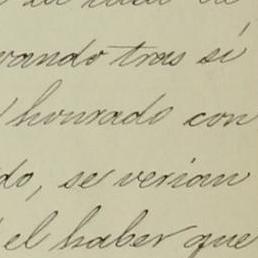 vando tras sí
honrado con
do, se verian
el haber que